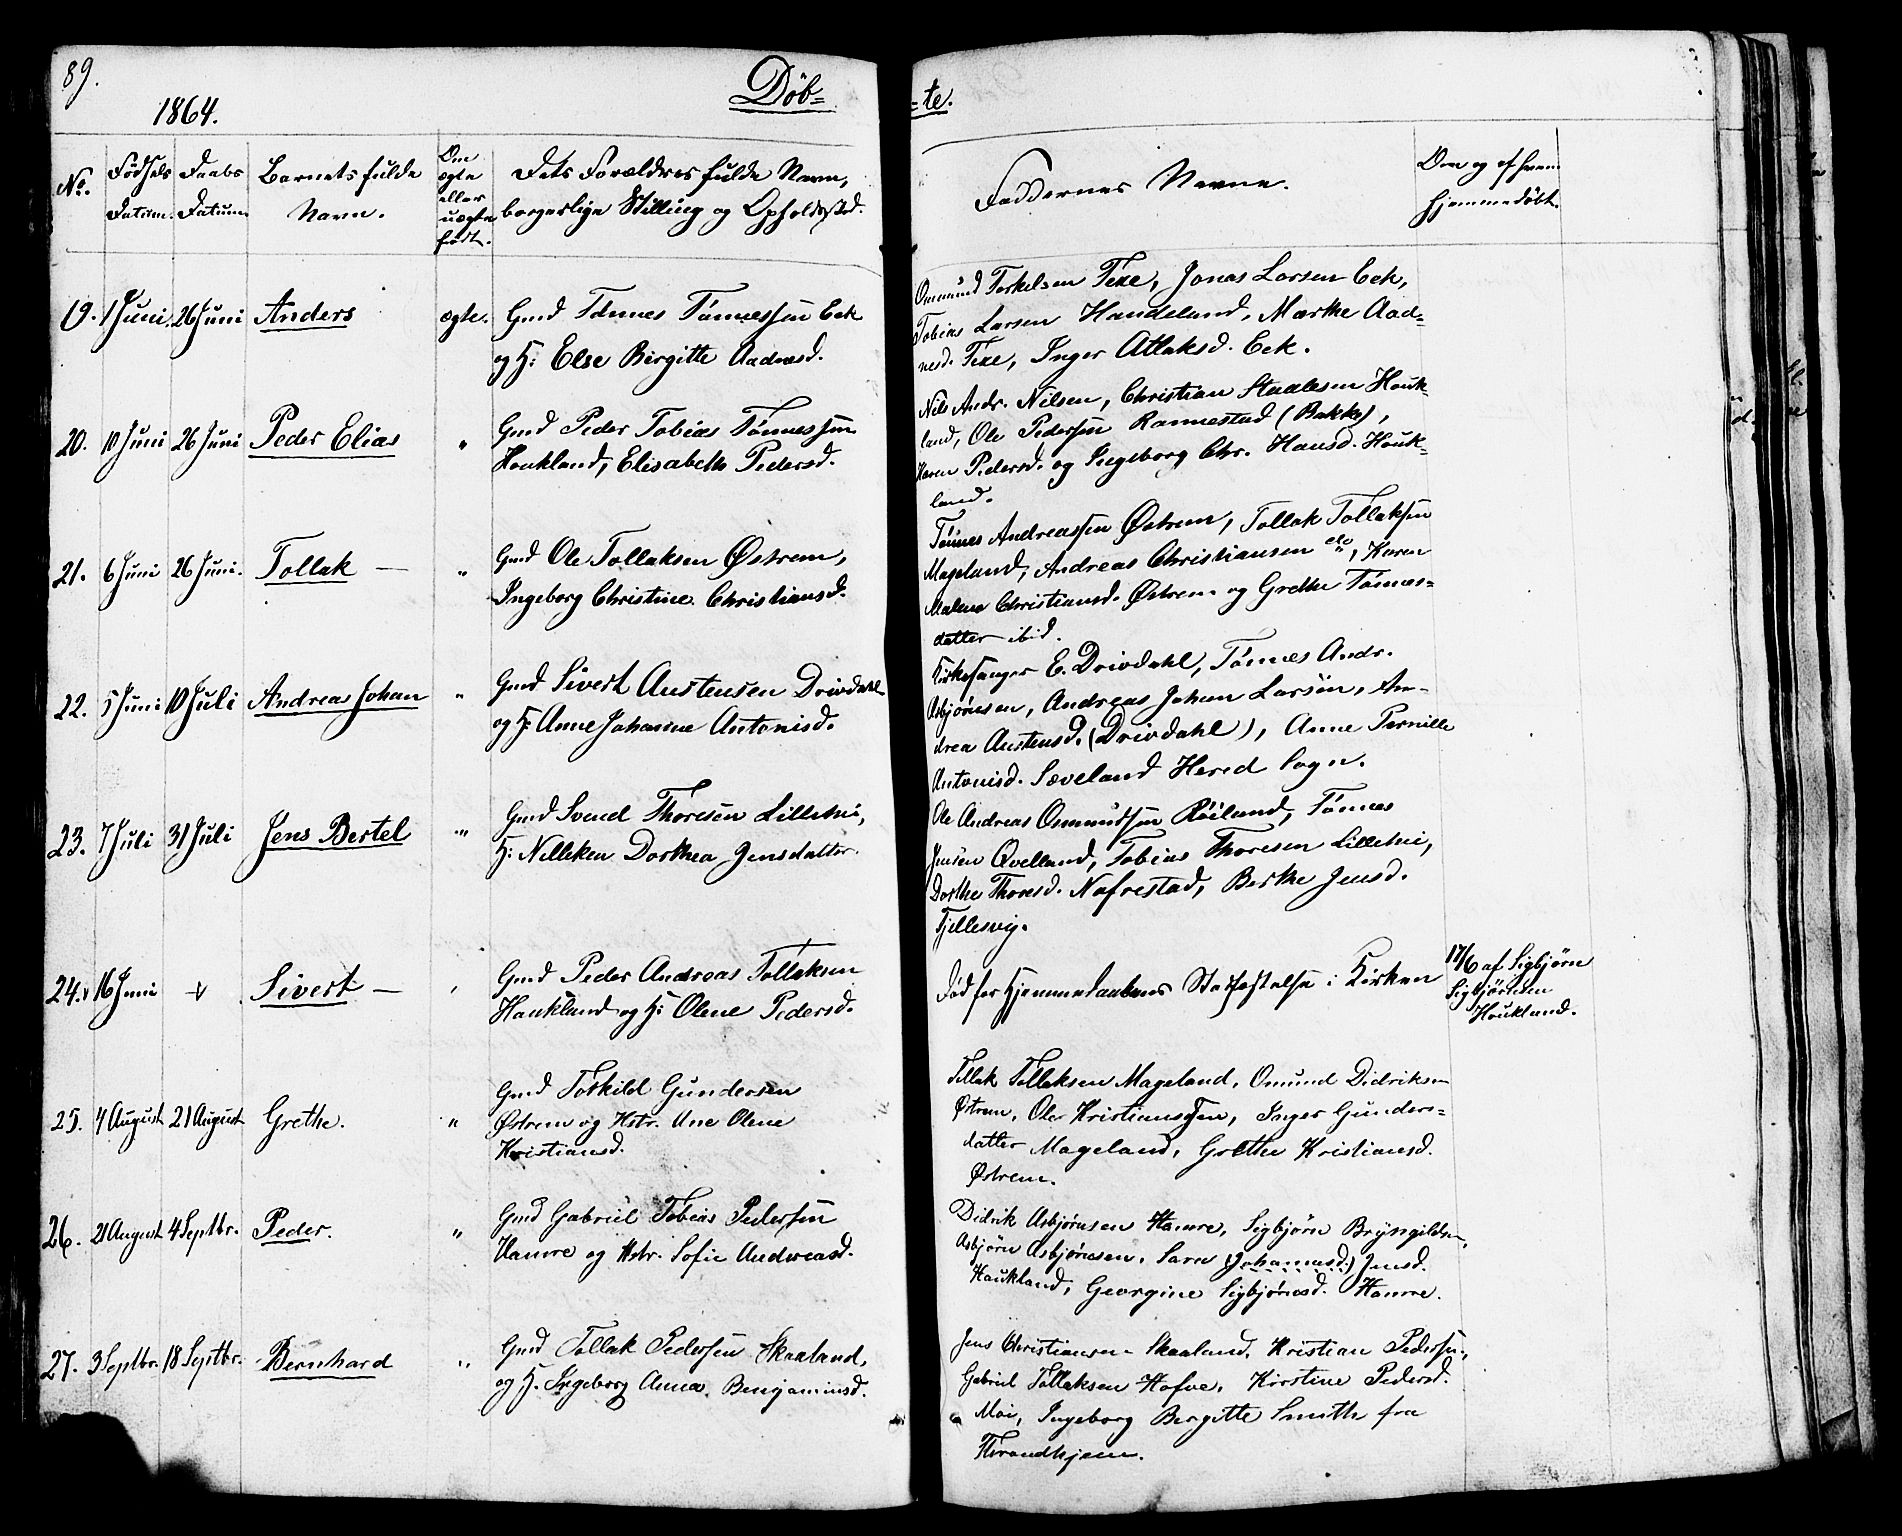 89.
1864.
Döb=
=te.
No. Fødsels Datum. Daabs Datum. Barnets fulde Navn. Om ægte eller uægte født. Dets Forældres fulde Navn, borgerlige Stilling og Opholdssted. Faddernes Navne. Om og af hvem hjemmedøbt.
19. 1 Juni. 26 Juni Anders ægte. Gmd Tønnes Tønnessen Eek
og H: Else Birgitte Aadnesd.
Ommund Torkelsen Fexe, Jonas Larsen Eek,
Tobias Larsen Handeland, Marthe Aad=
nesd. Fexe, Inger Atlaksd. Eek.
20. 10 Juni 26 Juni Peder Elias " Gmd Peder Tobias Tønnessen
Houkland, Elisabeth Pedersd.
Nils Andr. Nilsen, Christian Staalesen Houk=
land, Ole Pedersen Rannestad (Bakke),
Karen Pedersd. og Ingeborg Chr. Hansd. Houk=
land.
21. 6 Juni 26 Juni. Tollak — " Gmd Ole Tollaksen Østrem,
Ingeborg Christine Christiansd.
Tønnes Andreassen Østrem, Tollak Tollaksen
Mageland, Andreas Christiansen do, Karen
Malene Christiansd. Østrem og Grethe Tønnes=
datter ibid.
22. 5 Juni 10 Juli Andreas Johan " Gmd Sivert Austensen Drivdahl
og H. Anne Johanne Antonisd.
Kirkesanger E. Drivdahl, Tønnes Andr.
Asbjørnsen, Andreas Johan Larsen, An=
drea Austensd. (Drivdahl), Anne Pernille
Antonisd. Sæveland Hered Sogn.
23. 7 Juli 31 Juli Jens Bertel " Gmd Svend Thoresen Lillehei,
H: Nilleken Dorthea Jensdatter.
Ole Andreas Ommundsen Röiland, Tønnes
Jensen Qvelland, Tobias Thoresen Lillehei,
Dorthe Thoresd. Nafrestad, Berthe Jensd.
Fjellesvig.
24. 16 Juni Sivert — Gmd Peder Andreas Tollaksen
Haukland og H: Olene Pedersd.
Død før Hjemmedaabens Stadfæstelse i Kirken
17/6 af Sigbjørn
Sigbjørnsen
Houkland.
25. 4 August 21 August Grethe. " Gmd Torkild Gundersen
Østrem og Hstr. Ane Olene
Kristiansd.
Tollak Tollaksen Mageland, Omund Didriksen
Østrem, Ole Kristiansen, Inger Gunders=
datter Mageland, Grethe Kristiansd.
Østrem.
26. 21 August 4 Septbr. Peder. " Gmd Gabriel Tobias Pedersen
Hamre og Hstr. Sofie Andreasd.
Didrik Asbjørnsen Hamre, Sigbjørn Bryngildsen,
Asbjørn Asbjørnsen, Sara (Johannesd.) Jensd.
Haukland, Georgine Sigbjørnsd. Hamre.
27. 3 Septbr. 18 Septbr. Bernhard " Gmd Tollak Pedersen Skaaland,
og H. Ingeborg Anna Benjaminsd.
Jens Christiansen Skaaland, Kristian Pedersen,
Gabriel Tollaksen Hofve, Kirstine Pedersd.
Moi, Ingeborg Bergitte Smith fra
Throndhjem.